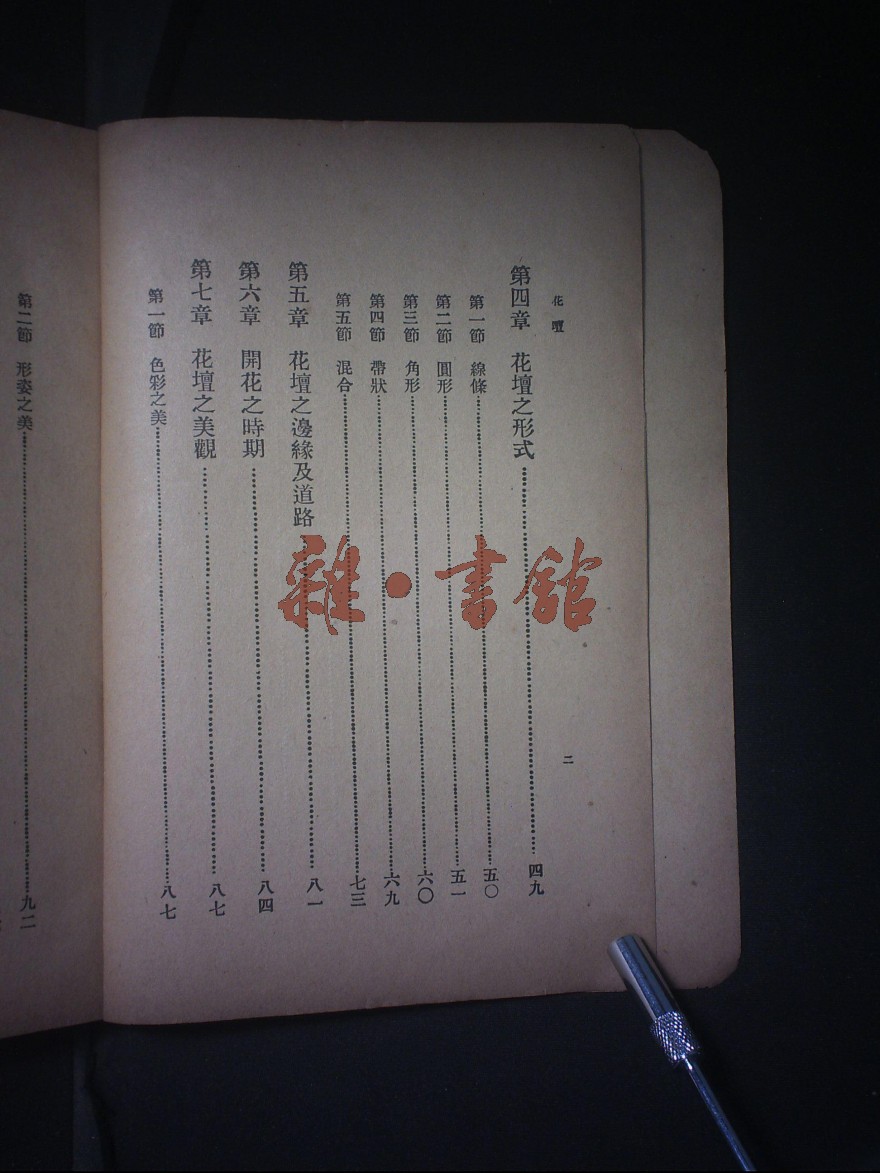 花壇
二
第四章 花壇之形式 四九
第一節 線條 五〇
第二節 圓形 五一
第三節 角形 六〇
第四節 帶狀 六九
第五節 混合 七三
第五章 花壇之邊緣及道路 八一
第六章 開花之時期 八四
第七章 花壇之美觀 八七
第一節 色彩之美 八七
第二節 形姿之美 九二
雜·書館